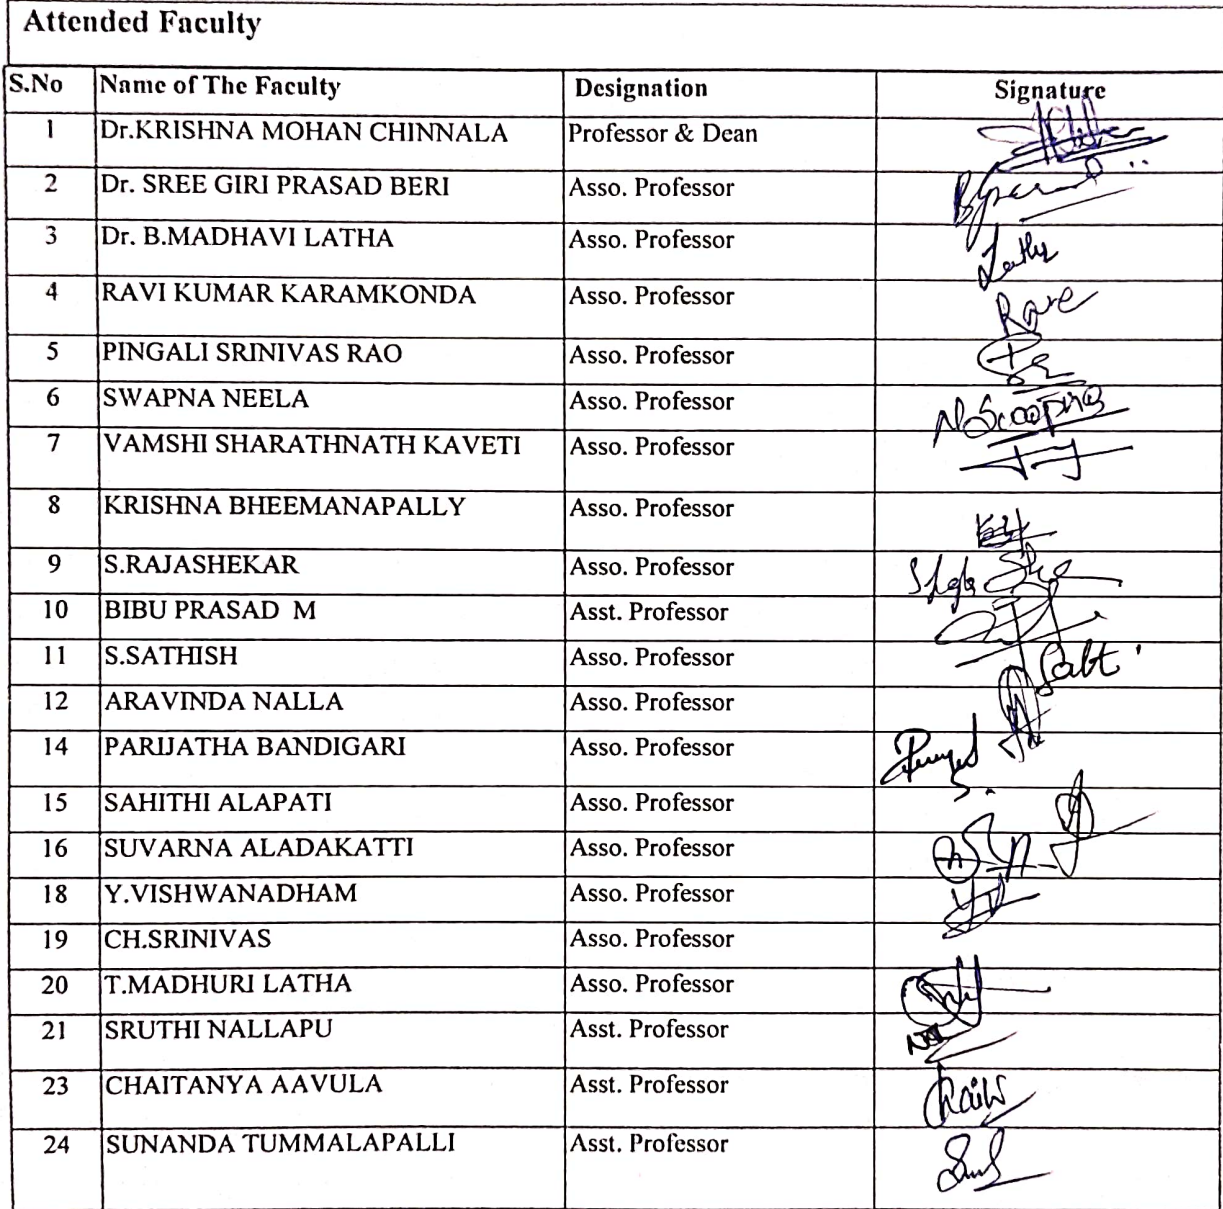 Attended Faculty
S.No Name of The Faculty Designation Signature
1 Dr.KRISHNA MOHAN CHINNALA Professor & Dean
2 Dr. SREE GIRI PRASAD BERI Asso. Professor
3 Dr. B.MADHAVI LATHA Asso. Professor Latha
4 RAVI KUMAR KARAMKONDA Asso. Professor
5 PINGALI SRINIVAS RAO Asso. Professor
6 SWAPNA NEELA Asso. Professor
7 VAMSHI SHARATHNATH KAVETI Asso. Professor
8 KRISHNA BHEEMANAPALLY Asso. Professor
9 S.RAJASHEKAR Asso. Professor
10 BIBU PRASAD M Asst. Professor
11 S.SATHISH Asso. Professor
12 ARAVINDA NALLA Asso. Professor
14 PARIJATHA BANDIGARI Asso. Professor
15 SAHITHI ALAPATI Asso. Professor
16 SUVARNA ALADAKATTI Asso. Professor
18 Y.VISHWANADHAM Asso. Professor
19 CH.SRINIVAS Asso. Professor
20 T.MADHURI LATHA Asso. Professor
21 SRUTHI NALLAPU Asst. Professor
23 CHAITANYA AAVULA Asst. Professor
24 SUNANDA TUMMALAPALLI Asst. Professor